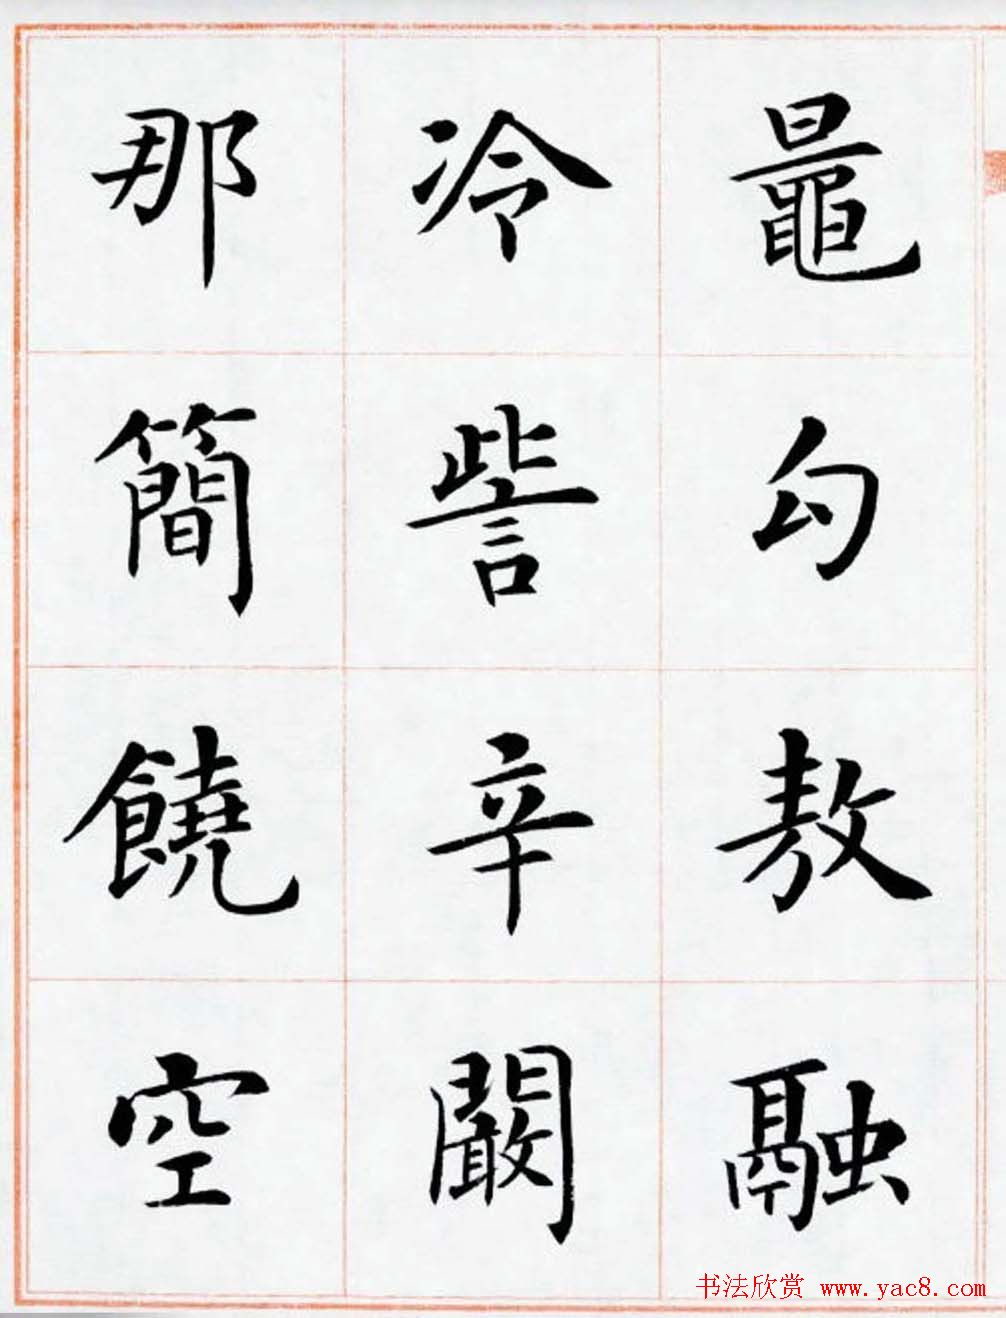 鼂勾敖融
冷訾辛闞
那簡饒空
书法欣赏 www.yac8.com